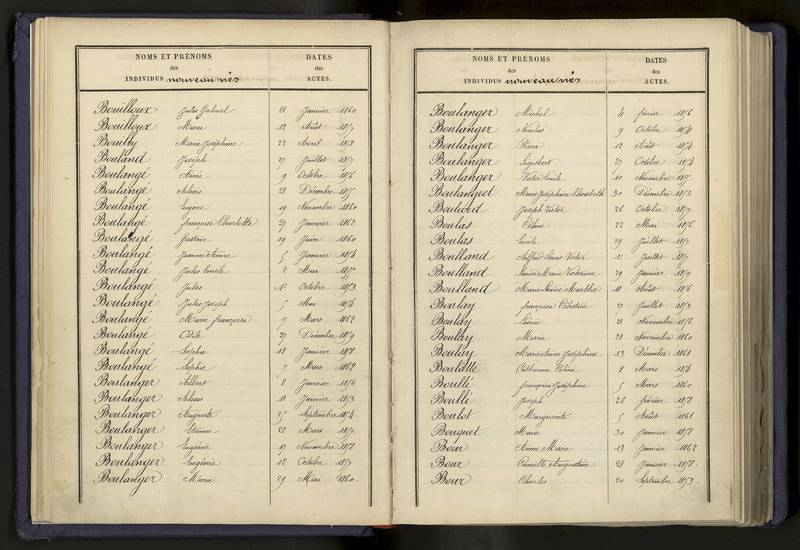 NOMS ET PRÉNOMS
des
INDIVIDUS nouveau nés
DATES
des
ACTES.
Bouilloux Jules Gabriel 21 Janvier 1860
Bouilloux Marie 12 Août
Bouilly Marie Joséphine 22 Avril
Bouland Joseph 27 Juillet
Boulangé Aimée 9 Octobre 1856
Boulangé Alexis 28 Décembre
Boulangé Eugène 19 Novembre 1860
Boulangé françoise Charlotte 27 Janvier 1862
Boulangé Justine 19 Juin 1860
Boulangé Jeanne Aimée 5 Janvier 1854
Boulangé Jules Emile 2 Mai
Boulangé Jules Octobre 1853
Boulangé Jules Joseph 5 Mai 1854
Boulangé Marie françoise 7 Mars 1862
Boulangé Odile 27 Décembre 1859
Boulangé Sophie 18 Janvier
Boulangé Sophie 7 Mars 1862
Boulanger Albert 8 Janvier 1856
Boulanger Alexis 11 Janvier 1853
Boulanger Auguste 25 Septembre 1854
Boulanger Etienne 28 Mars
Boulanger Eugène 17 Novembre
Boulanger Eugénie 12 Octobre
Boulanger Marie 29 Mai 1860
NOMS ET PRÉNOMS
des
INDIVIDUS nouveau nés
DATES
des
ACTES.
Boulanger Michel 4 février 1856
Boulanger Nicolas 9 Octobre 1854
Boulanger Pierre 12 Août 1854
Boulanger Sigisbert 27 Octobre 1854
Boulanger Victor Emile 10 Novembre
Boulangeot Marie Joséphine Elisabeth 30 Décembre 1853
Joseph Victor 26 Octobre
Boulas Céline 22 Mai 1856
Boulas Emile 29 Juillet
Boulland Alfred Louis Victor Juillet
Boulland Louise Marie Victorine 29 Janvier 1859
Boulland Marie Louise Marthe 11 Août 1856
Boulay françoise Célestine 27 Juillet 1853
Boulay Léonie 21 Novembre 1856
Boulay Marie 21 Novembre 1860
Boulay Marie Anne Joséphine 13 Décembre 1861
Catherine Céline 8 Mars 1854
Boullé françoise Joséphine 5 Mars 1860
Boullé Joseph 26 février
Boulot Marguerite 5 Août 1861
Bouquet Marie 30 Janvier
Bour Anne Marie 13 Janvier 1862
Bour Camille Augustine 28 Janvier
Bour Charles 20 Septembre 1853